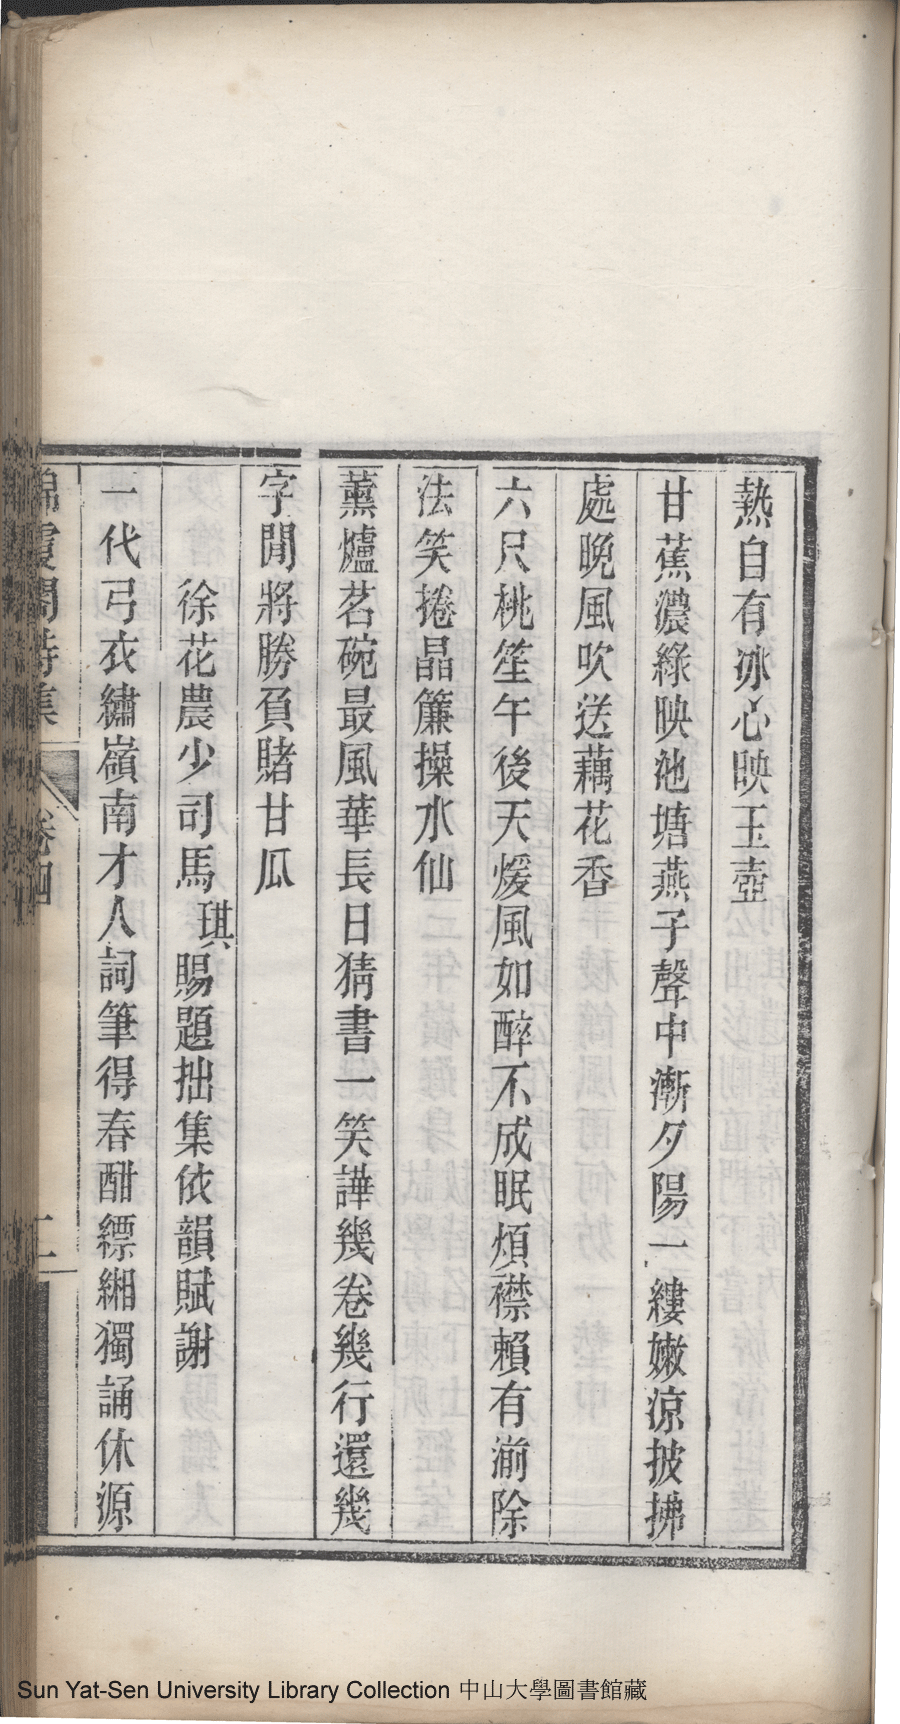 熱自有冰心映玉壺
甘蕉濃綠映池塘燕子聲中漸夕陽一縷嫩涼披拂
處晚風吹送藕花香
六尺桃笙午後天煖風如醉不成眠煩襟賴有湔除
法笑捲晶簾操水仙
薰爐茗碗最風華長日猜書一笑譁幾卷幾行還幾
字閒將勝負賭甘瓜
徐花農少司馬琪賜題拙集依韻賦謝
一代弓衣繡嶺南才人詞筆得春酣縹緗獨誦休源
錦霞閣詩集 卷四 二
Sun Yat-Sen University Library Collection 中山大學圖書館藏